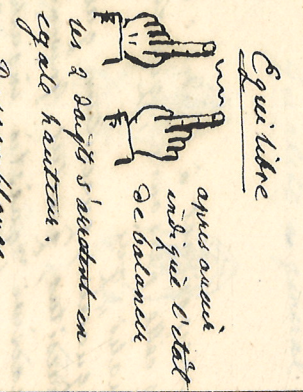 Equilibre
apres avoir
indiqué l'état
de balance
les 2 doigts s'arretent en
egale hauteur.